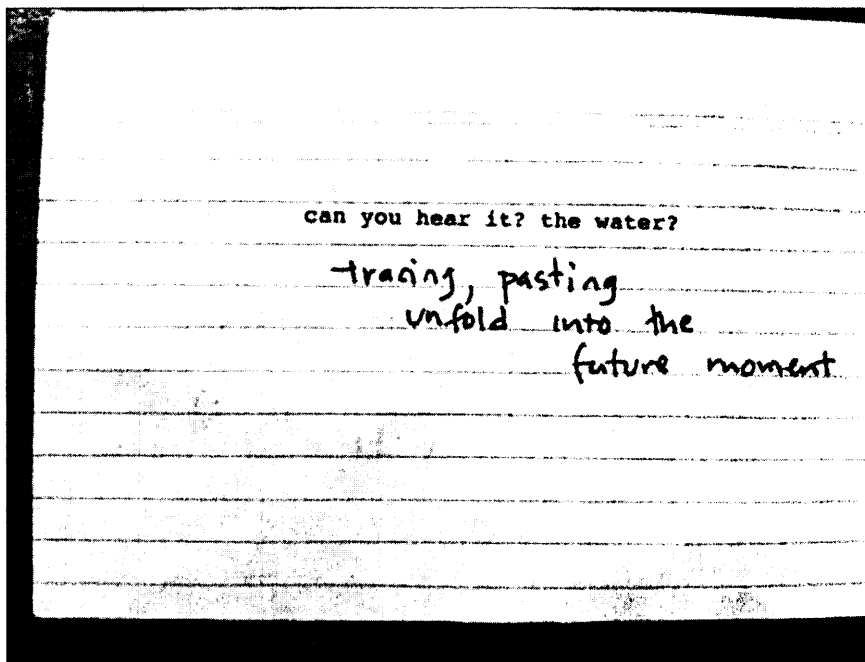 can you hear it? the water?
tracing, pasting
unfold into the
future moment